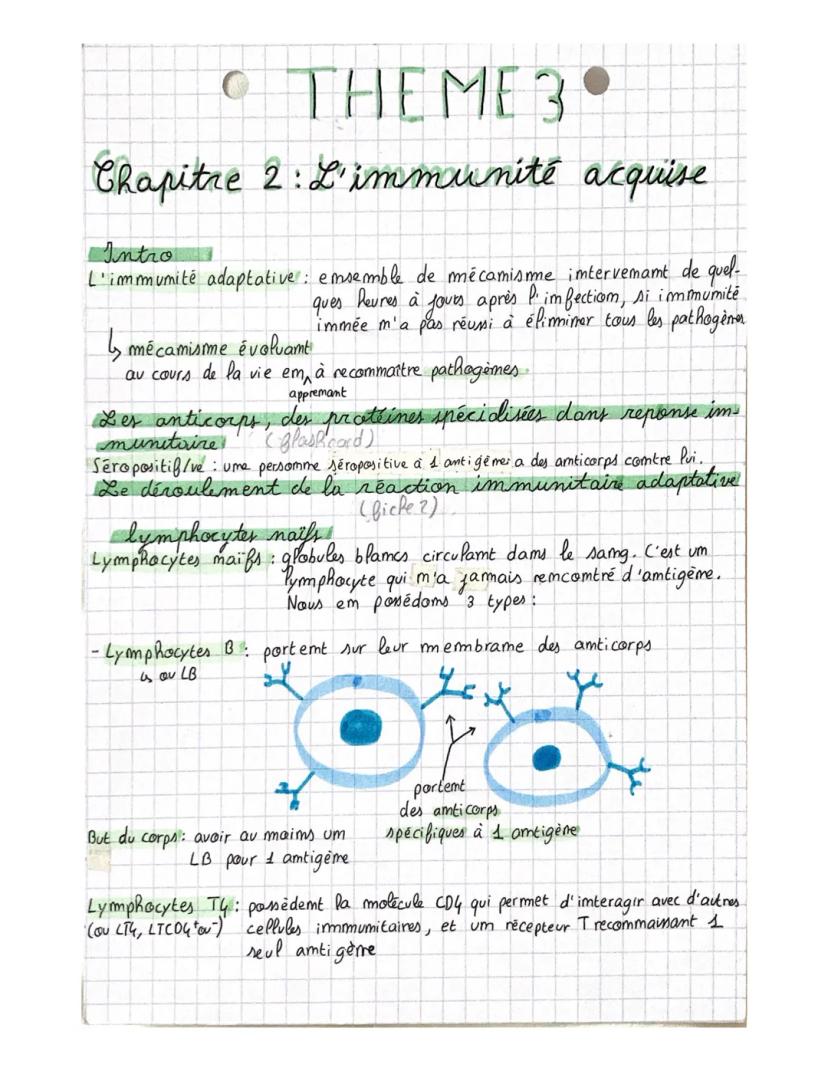 THEME 3
Chapitre 2 : L'immunité acquise
Intro
L'immunité adaptative : ensemble de mécanisme intervenant de quel-
ques heures à jours après l'infection, si immunité
innée n'a pas réussi à éliminer tous les pathogènes
↳ mécanisme évoluant
au cours de la vie en apprenant à reconnaître pathogènes
Les anticorps, des protéines spécialisées dans reponse im-
munitaire (flashcard)
Séropositif/ve : une personne séropositive à 1 antigène a des anticorps contre lui.
Le déroulement de la réaction immunitaire adaptative
(fiche 2)
lymphocytes naïfs
Lymphocytes naïfs : globules blancs circulant dans le sang. C'est un
lymphocyte qui n'a jamais rencontré d'antigène.
Nous en possédons 3 types :
- Lymphocytes B : portent sur leur membrane des anticorps
↳ ou LB
portent
des anticorps
spécifiques à 1 antigène
But du corps : avoir au moins un
LB pour 1 antigène
Lymphocytes T4 : possèdent la molécule CD4 qui permet d'interagir avec d'autres
(ou LT4, LTCD4⁺ou⁻) cellules immunitaires, et un récepteur T reconnaissant 1
seul antigène